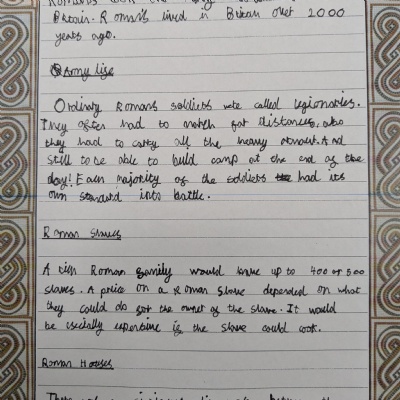 Britain. Romans lived in Britain over 2000
years ago.
Army life
Ordinary Romans soldiers were called legionaries.
They often had to march far distances, also
they had to carry all the heavy armour. And
still to be able to build camp at the end of the
day! Each majority of the soldiers had its
own standard into battle.
Roman Slaves
A rich Roman family would have up to 400 or 500
slaves. A price on a Roman slave depended on what
they could do for the owner of the slave. It would
be especially expensive if the slave could cook.
Roman Houses